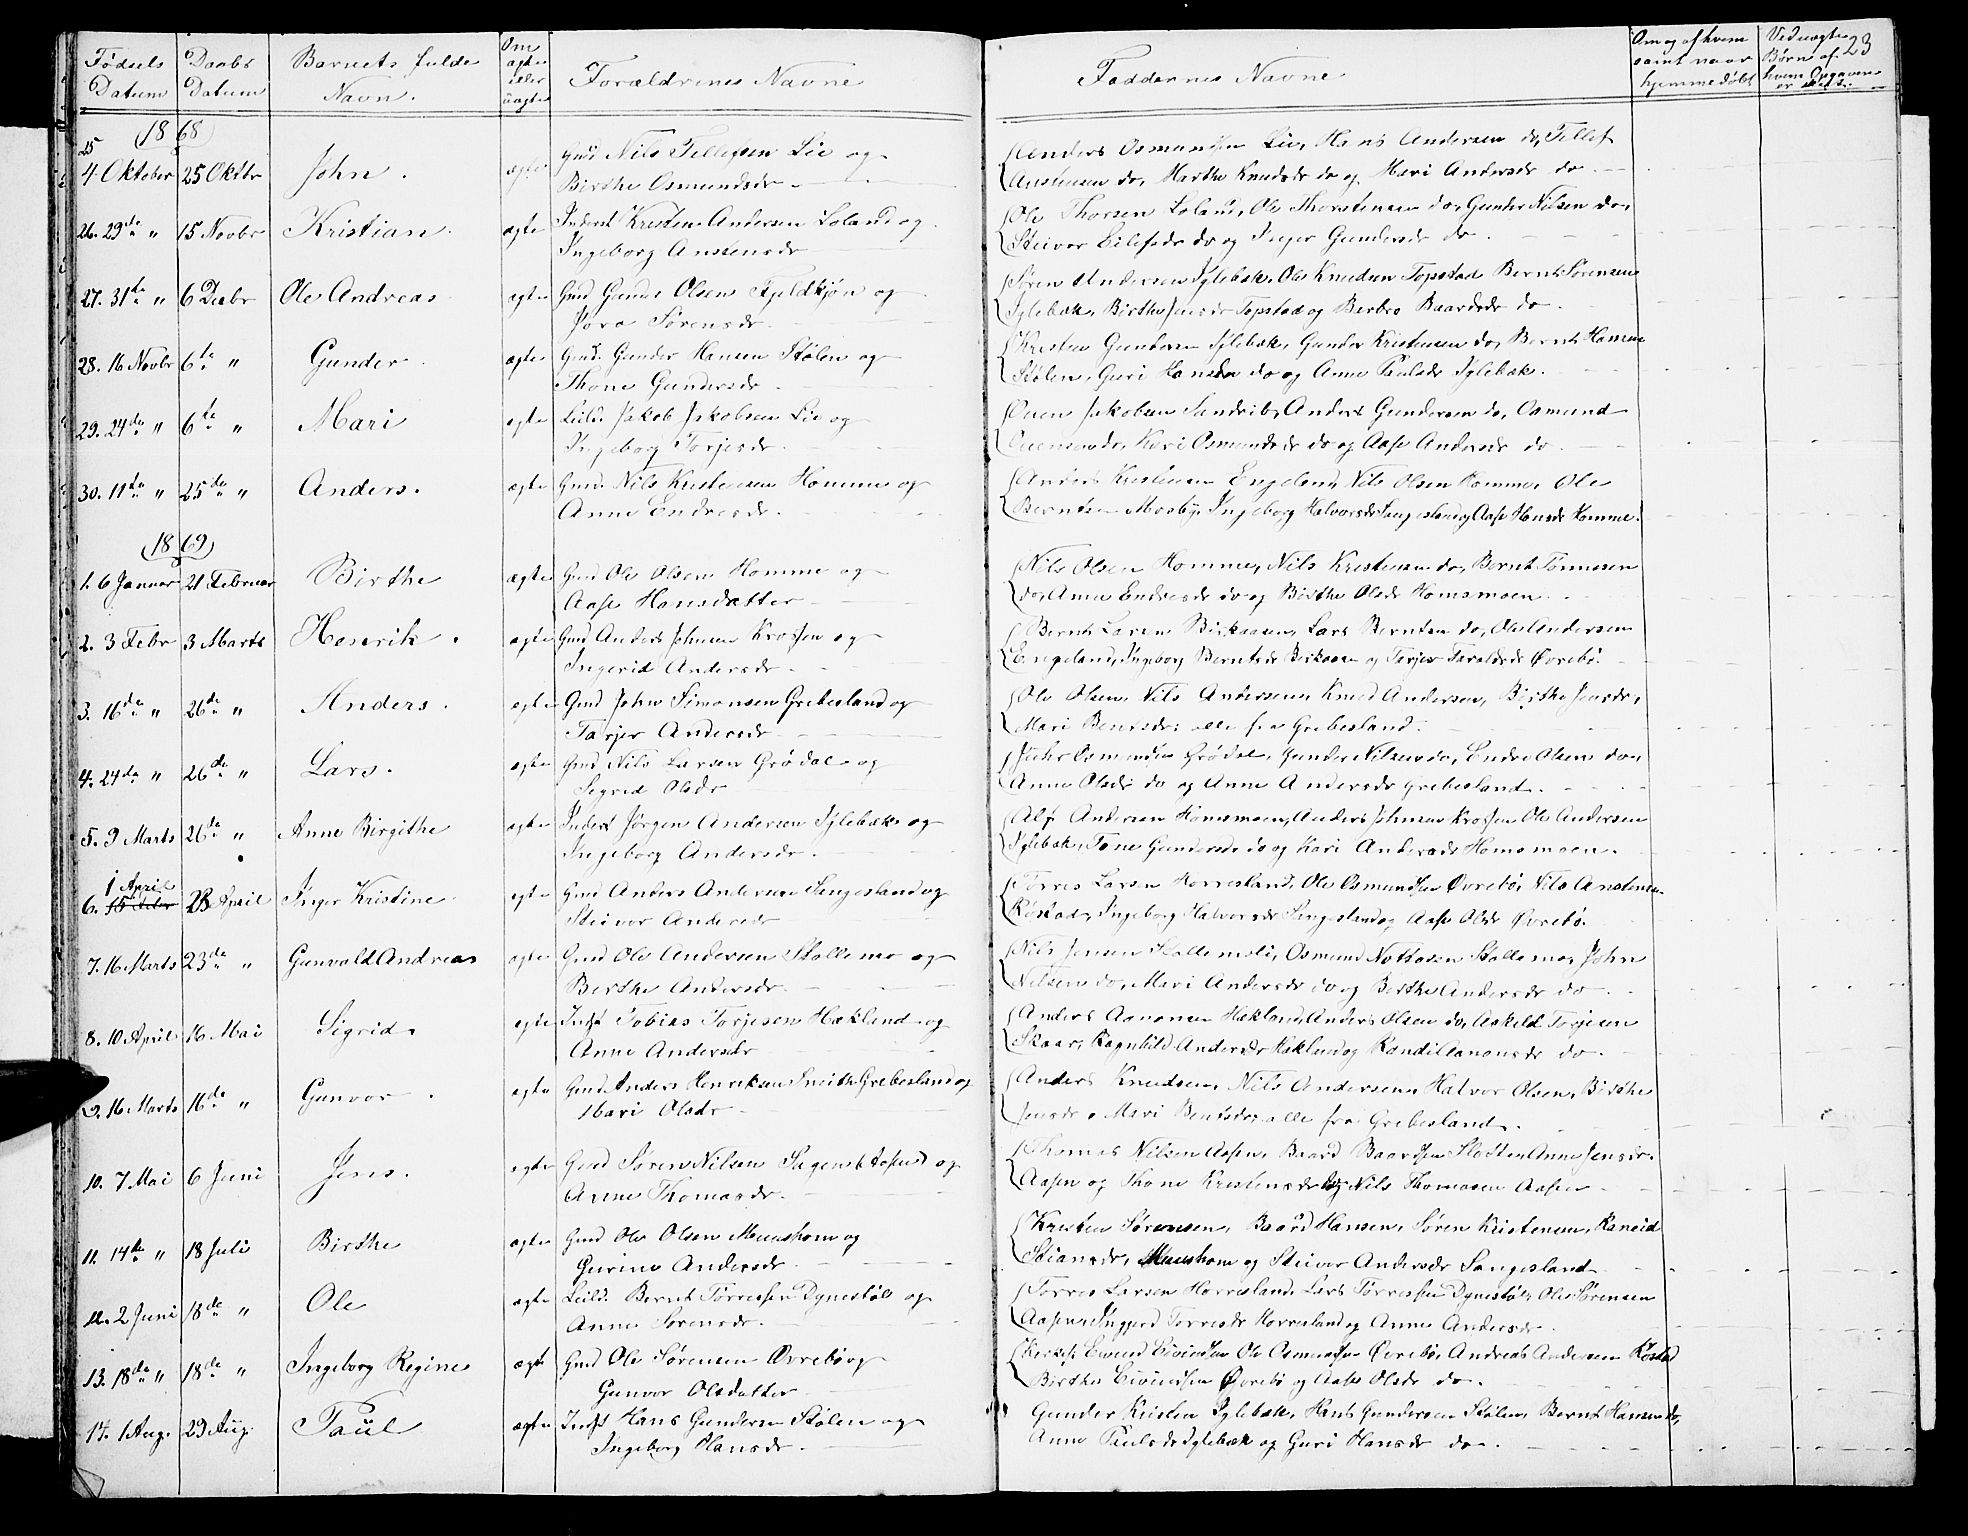 Fødsels Datum
Daabs Datum
Barnets fulde Navn.
Om ægte eller uægte
Forældrenes Navne
Faddernes Navne
Om og af hvem samt naar hjemmedøbt
Ved uægte Børn af hvem Opgaven er
23
1868
25 4 Oktober 25 Oktbr John. ægte Gmd Nils Tellefsen Lie og
Birthe Osmundsdr
Anders Osmundsen Lie, Hans Andersen do, Tellef
Austensen do, Marthe Knudsdr do og Mari Andersdr do
26. 29de " 15 Novbr Kristian. ægte Inderst Kristen Andersen Loland og
Ingeborg Anstensdr
Ole Thorsen Loland, Ole Thorstensen do, Gunder Nilsen do,
Steivor Eilefsdr do og Inger Gundersdr do
27. 31te " 6 Decbr Ole Andreas ægte Gmd Gunder Olsen Fjeldkjøn og
Jora Sørensdr
Søren Andersen Iglebæk, Ole Knudsen Topstad Bernt Sørensen
Iglebæk, Birthe Jensdr Topstad og Berbro Baardsdr do
28. 16 Novbr 6te " Gunder ægte Gmd. Gunder Hansen Stølen og
Thone Gundersdr
Kristen Gundersen Iglebæk, Gunder Kristensen do, Bernt Hansen
Stølen, Guri Hansdr do og Anne Paulsdr Iglebæk.
29. 24de " 6te " Mari ægte Leild. Jakob Jakobsen Lie og
Ingeborg Torjesdr
Ouen Jakobsen Sandrib, Anders Gundersen do, Osmund
Ouensen do, Kari Osmundsdr do og Aase Andersdr do
30. 11te " 25de " Anders. ægte Gmd. Nils Kristensen Homme og
Anne Endresdr
Anders Kristensen Engeland Nils Olsen Homme, Ole
Berntsen Mosby, Ingeborg Halvorsdr Sangesland og Aase Hansdr Homme.
1869
1. 6 Januar 21 Februar Birthe ægte Gmd Ole Olsen Homme og
Aase Hansdatter
Nils Olsen Homme, Nils Kristensen do, Bernt Tønnesen
do, Anne Endresdr do og Birthe Olsdr Homsmoen
2. 3 Febr 3 Marts Henrik. ægte Gmd Anders Johnsen Krossen og
Ingerid Andersdr
Bernt Larsen Birkaasen, Lars Berntsen do, Ole Andersen
Engeland, Ingeborg Berntsdr Birkaasen og Torjer Taraldsdr Øvrebø.
3. 16de " 26de " Anders. ægte Gmd John Simonsen Grebesland og
Torjer Andersdr
Ole Olsen, Nils Andersen, Knud Andersen, Birthe Jensdr,
Mari Bentsdr, alle fra Grebesland.
4. 24de " 26de " Lars. ægte Gmd Nils Larsen Grødal og
Sigrid Olsdr
Osmundsen Grødal, Gunder Nilsen do, Endre Olsen do,
Anne Olsdr do og Anne Andersdr Grebesland
5. 9 Marts 26de " Anne Birgithe ægte Inderst Jørgen Andersen Iglebæk og
Ingeborg Andersdr.
Alf Andersen Homsmoen, Anders Johnsen Krossen Ole Andersen
Iglebæk, Tone Gundersdr do og Kari Andersdr Homsmoen.
1 April
6. 15 Febr 23 April Inger Kristine ægte Gmd Anders Andersen Sangesland og
Steivor Andersdr
Torres Larsen Horresland, Ole Osmundsen Øvrebø, Nils Anstensen
Røstad, Ingeborg Halvorsdr Sangesland og Aase Olsdr Øvrebø.
7. 16 Marts 23de " Gunvald Andreas ægte Gmd Ole Andersen Stallemo og
Berthe Andersdr
Nils Jensen Stallemoli, Osmund Nottosen Stallemo, John
Nilsen do, Mari Andersdr do og Berthe Andersdr do
8. 10 April 16 Mai Sigrid. ægte Indst Tobias Torjesen Hækland og
Anne Andersdr
Anders Aanonsen Hækland, Anders Olsen do, Askeld Torjesen
Skaar, Ragnhild Andersdr Hækland og Randi Aanonsdr do
9. 16 Marts 16de " Gunvor ægte Gmd. Anders Henriksen Grebesland og
Mari Olsdr
Anders Knudsen, Nils Andersen, Halvor Olsen, Birthe
Jensdr, Mari Bentsdr, alle fra Grebesland.
10. 7 Mai 6 Juni Jens. ægte Gmd Søren Nilsen og
Anne Thomasdr
Thomas Nilsen Aasen, Baard Baardsen Anne Jensdr
Aasen og Thone Kristensdr og Nils Thomasen Aasen
11. 14de " 18 Juli Birthe ægte Gmd Ole Olsen Muushom og
Gurine Andersdr
Kristen Sørensen, Baard Hansen, Søren Kristensen, Raneid
Stiansdr, Muushom og Steivor Andersdr Sangesland
12. 2 Juni 18de " Ole ægte Leild. Bernt Torressen Dynestøl og
Anne Sørensdr
Torres Larsen Horresland Lars Torressen Dynestøl, Ole Sørensen
Aasen, Ingjerd Torresdr Horresland og Anne Andersdr
13. 18de " 18de " Ingeborg Regine ægte Gmd Ole Sørensen Øvrebø og
Gunvor Olsdatter
Eivind Eivindsen Ole Osmundsen Øvrebø, Andreas Andersen Røstad
Birthe Eivindsen Øvrebø og Aase Olsdr do
14. 1 Aug. 29 Aug. Paul ægte Indst Hans Gundersen Stølen og
Ingeborg Hansdr
Gunder Kristen Iglebæk, Hans Gundersen Stølen, Bernt Hansen do,
Anne Paulsdr Iglebæk og Guri Hansdr do